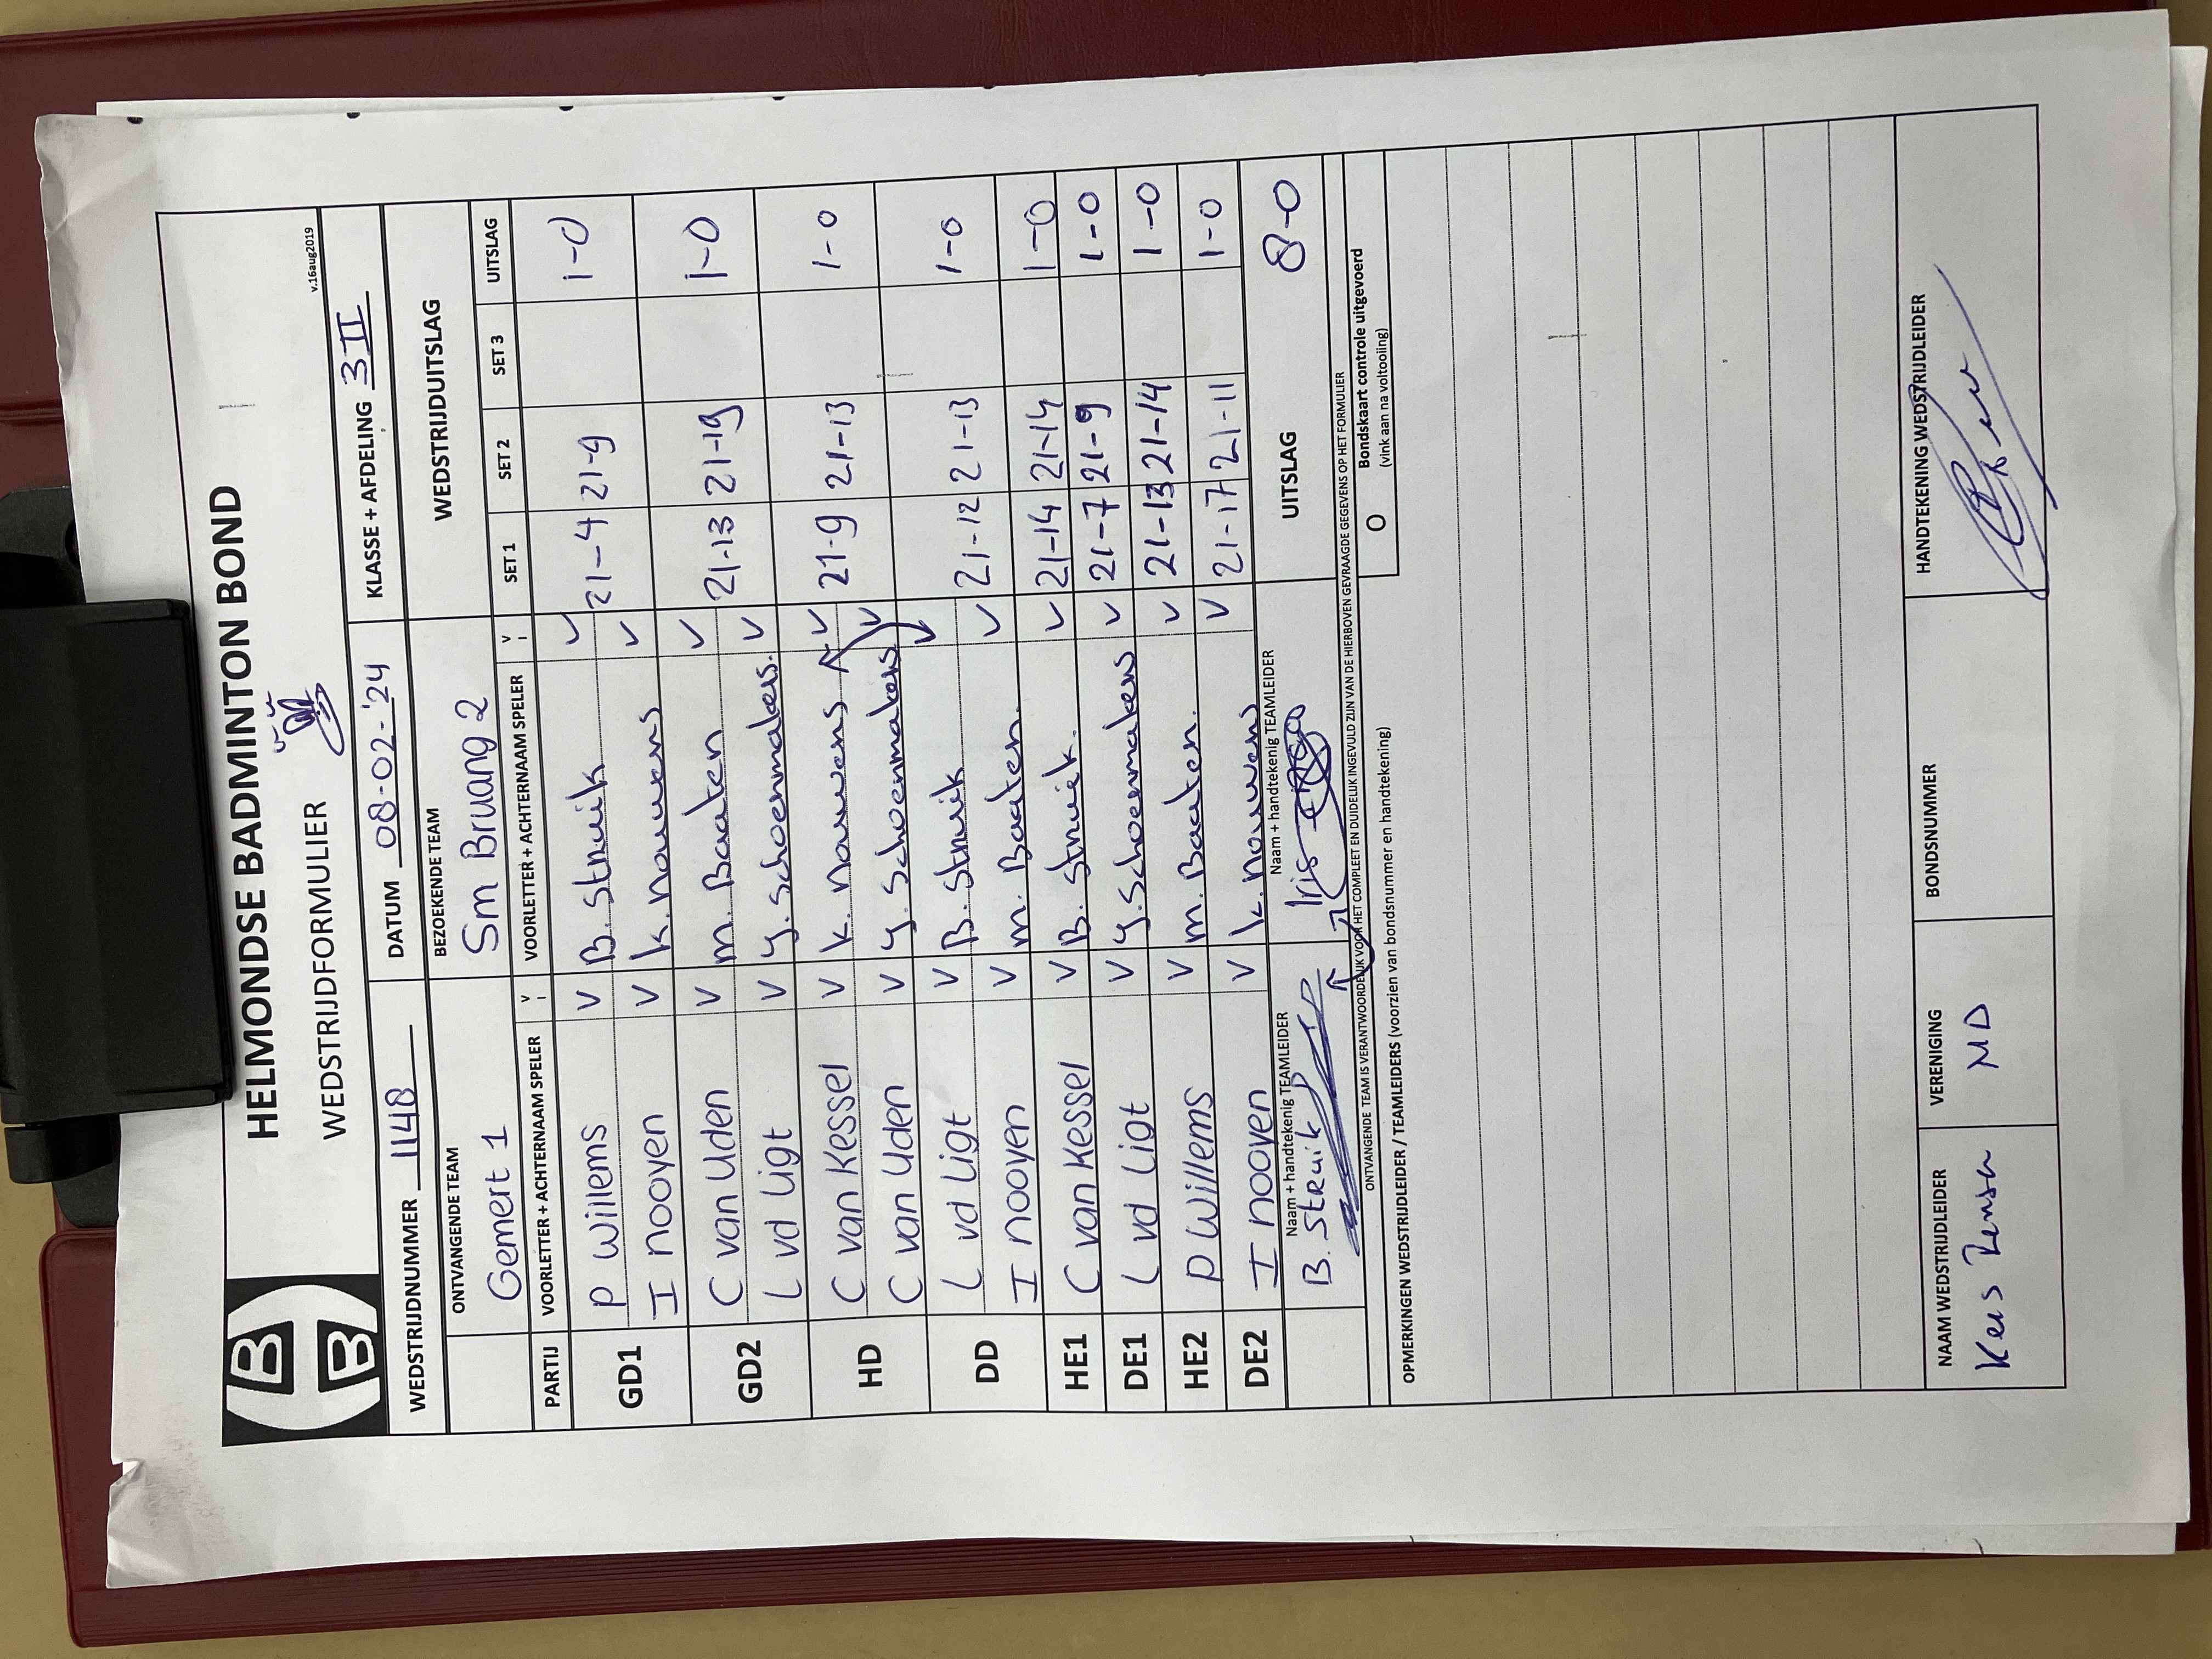 HELMONDSE BADMINTON BOND
WEDSTRIJDFORMULIER
v.16aug2019
WEDSTRIJDNUMMER 1148 DATUM 08-02-'24 KLASSE + AFDELING 3 II
ONTVANGENDE TEAM BEZOEKENDE TEAM WEDSTRIJDUITSLAG
Gemert 1 Sm Bruang 2
PARTIJ VOORLETTER + ACHTERNAAM SPELER V VOORLETTER + ACHTERNAAM SPELER V SET 1 SET 2 SET 3 UITSLAG
GD1 P Willems V B. Struik V 21-4 21-9 1-0
I nooyen V k. nouwens V
GD2 C van Uden V m. Baaten V 21-13 21-19 1-0
L vd Ligt V y. schoenmakers. V
HD C van Kessel V k. nouwens V 21-9 21-13 1-0
C van Uden V y. Schoenmakers V
DD L vd Ligt V B. Struik V 21-12 21-13 1-0
I nooyen V m. Baaten. V
HE1 C van Kessel V B. Struik. V 21-14 21-14 1-0
DE1 L vd Ligt V y. Schoenmakers V 21-7 21-9 1-0
HE2 P Willems V m. Baaten. V 21-13 21-14 1-0
DE2 I nooyen V k. nouwens V 21-17 21-11 1-0
Naam + handtekenig TEAMLEIDER Naam + handtekenig TEAMLEIDER UITSLAG 8-0
B. Struik Iris
ONTVANGENDE TEAM IS VERANTWOORDELIJK VOOR HET COMPLEET EN DUIDELIJK INGEVULD ZIJN VAN DE HIERBOVEN GEVRAAGDE GEGEVENS OP HET FORMULIER
OPMERKINGEN WEDSTRIJDLEIDER / TEAMLEIDERS (voorzien van bondsnummer en handtekening)
O Bondskaart controle uitgevoerd
(vink aan na voltooiing)
NAAM WEDSTRIJDLEIDER VERENIGING BONDSNUMMER HANDTEKENING WEDSTRIJDLEIDER
Kees MD